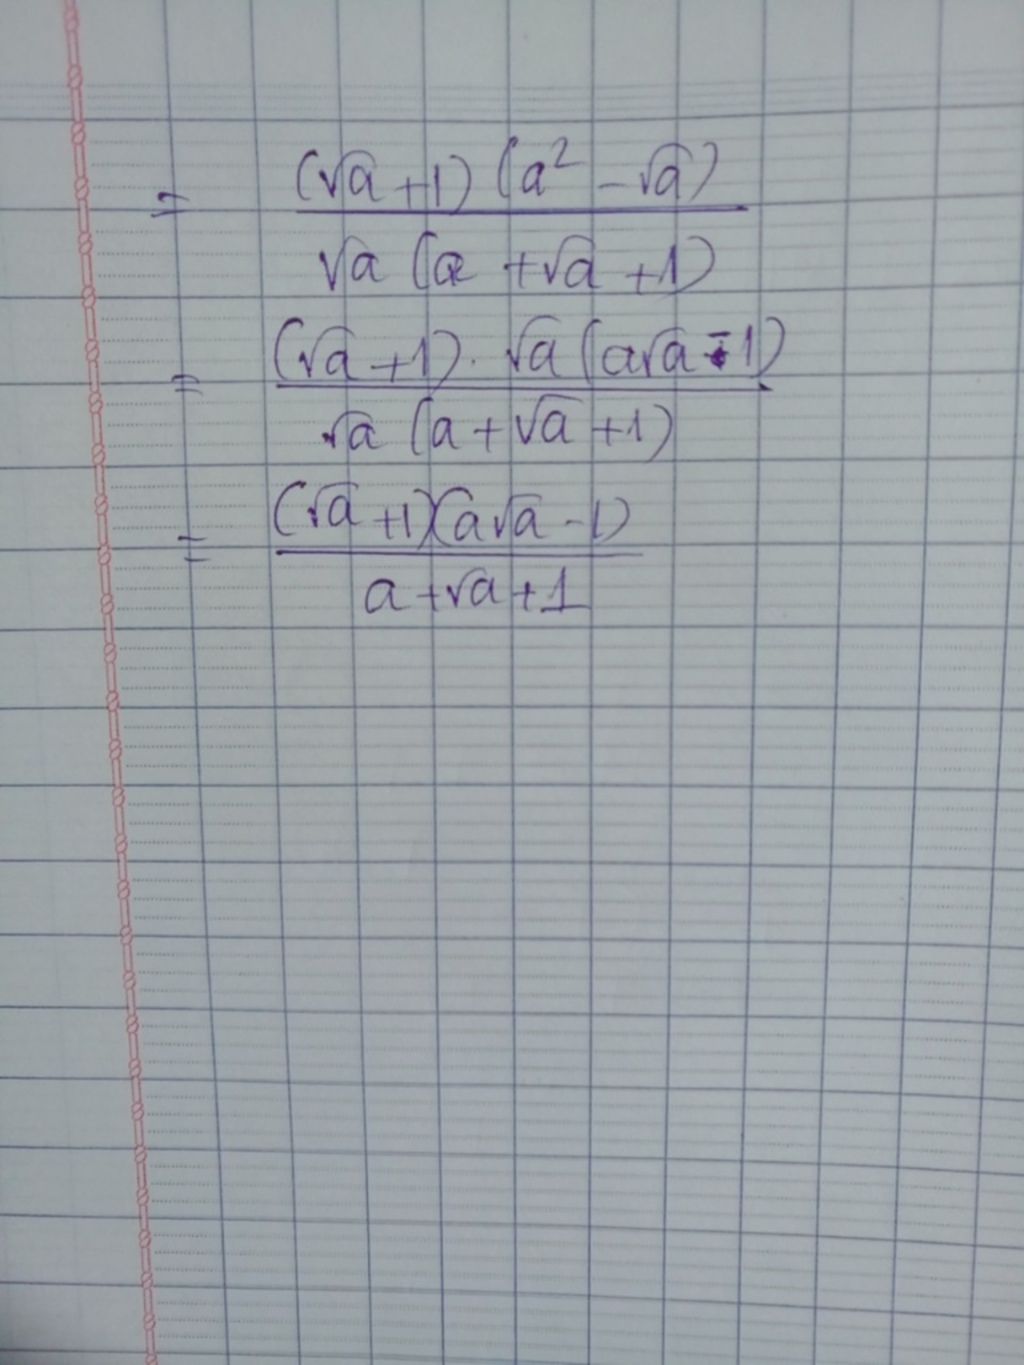 = (√a + 1) (a² - √a)
√a (a + √a + 1)
= (√a + 1) . √a (a√a - 1)
√a (a + √a + 1)
= (√a + 1)(a√a - 1)
a + √a + 1